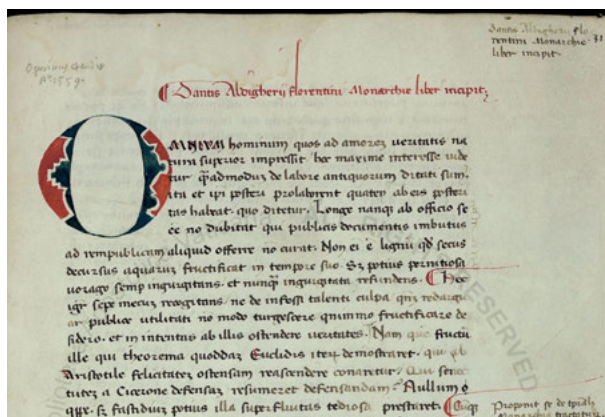 Dantis Aldigherij flo
rentini Monarchie
liber incipit
31
Oporinus edidit
A° 1559.
Dantis Aldigherij florentini Monarchie liber incipit
OMNIUM hominum quos ad amorez veritatis na
tura superior impressit hoc maxime interesse vide
tur qadmoduz de labore antiquorum ditati sunt
ita et ipi posteri prolaborent quaten ab eis posteri
tas habeat quo ditetur. Longe nanqz ab officio se
ee no dubitat qui publicis documentis imbutus
ad rempublicam aliquid offerre no curat. Non ei e lignu qd secus
decursus aquarum fructificat in tempore suo. Sz potius pernitiosa
vorago semp ingurgitans et nunqz ingurgitata refundens. Hec
igr sepe mecuz recogitans ne de infossi talenti culpa qnz redargu
ar publice utilitati no modo turgescere quinimo fructificare de
sidero. et in intentas ab illis ostendere veritates. Nam que fructu
ille qui theorema quoddaz Euclidis iteru demostraret. qui ab
Aristotile felicitatez ostensam reostendere conaretur. Qui senec
tutez a Cicerone defensaz resumeret defensandam. Nullum
qppe. sz fastidiuz potius illa superfluitas tediosa prestaret. Cumqz
Proponit se de tpali